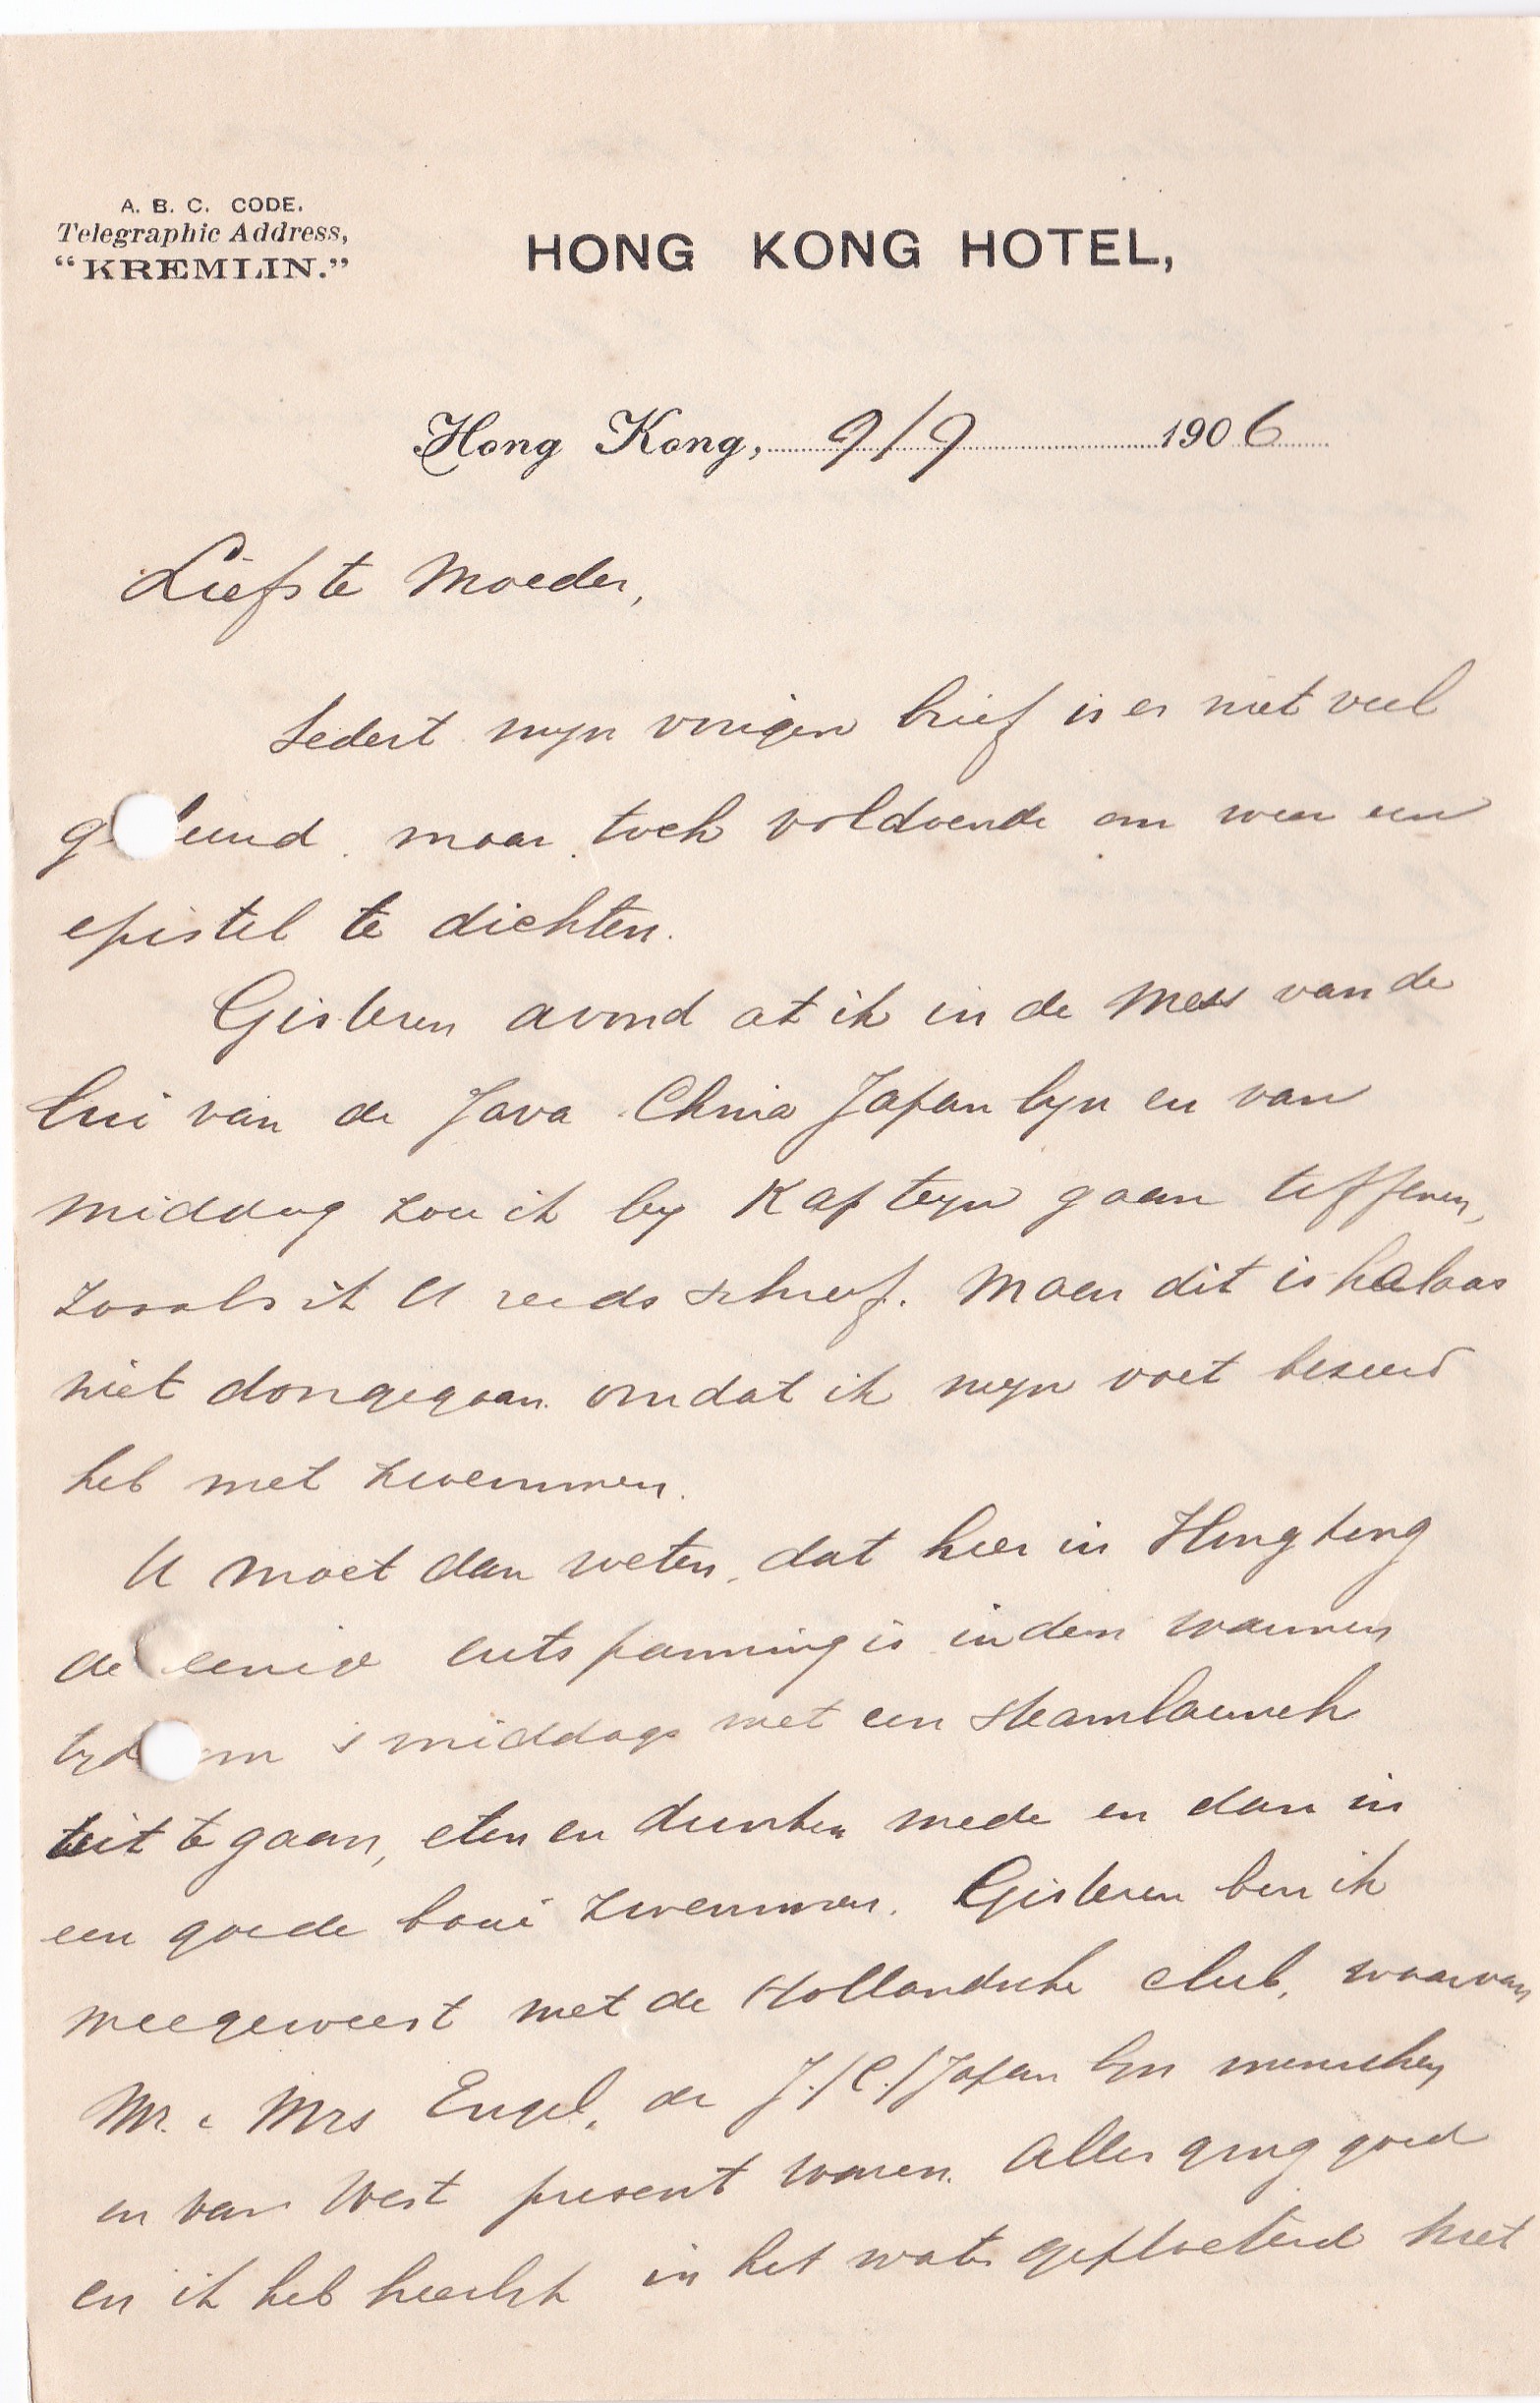 A. B. C. CODE.
Telegraphic Address,
"KREMLIN."
HONG KONG HOTEL,
Hong Kong, 9/9 1906
Liefste Moeder,
Sedert myn vorigen brief is er niet veel
gebeurd. maar toch voldoende om weer een
epistel te dichten.
Gisteren avond at ik in de mess van de
lui van de Java China Japan lyn en van
middag zou ik by Kapteyn gaan tiffenen,
zooals ik U reeds schreef. Maar dit is helaas
niet doorgegaan omdat ik myn voet bezeerd
heb met zwemmen.
U moet dan weten, dat hier in Hongkong
de eenige uitspanning is in den warmen
tyd om 's middags met een steamlaunch
uit te gaan, eten en drinken mede en dan in
een goede baai zwemmen. Gisteren ben ik
meegeweest met de Hollandsche club, waarvan
Mr. & Mrs Engel, de J./C./Japan lyn menschen
en van West present waren. Alles ging goed
en ik heb heerlyk in het water geploeterd met